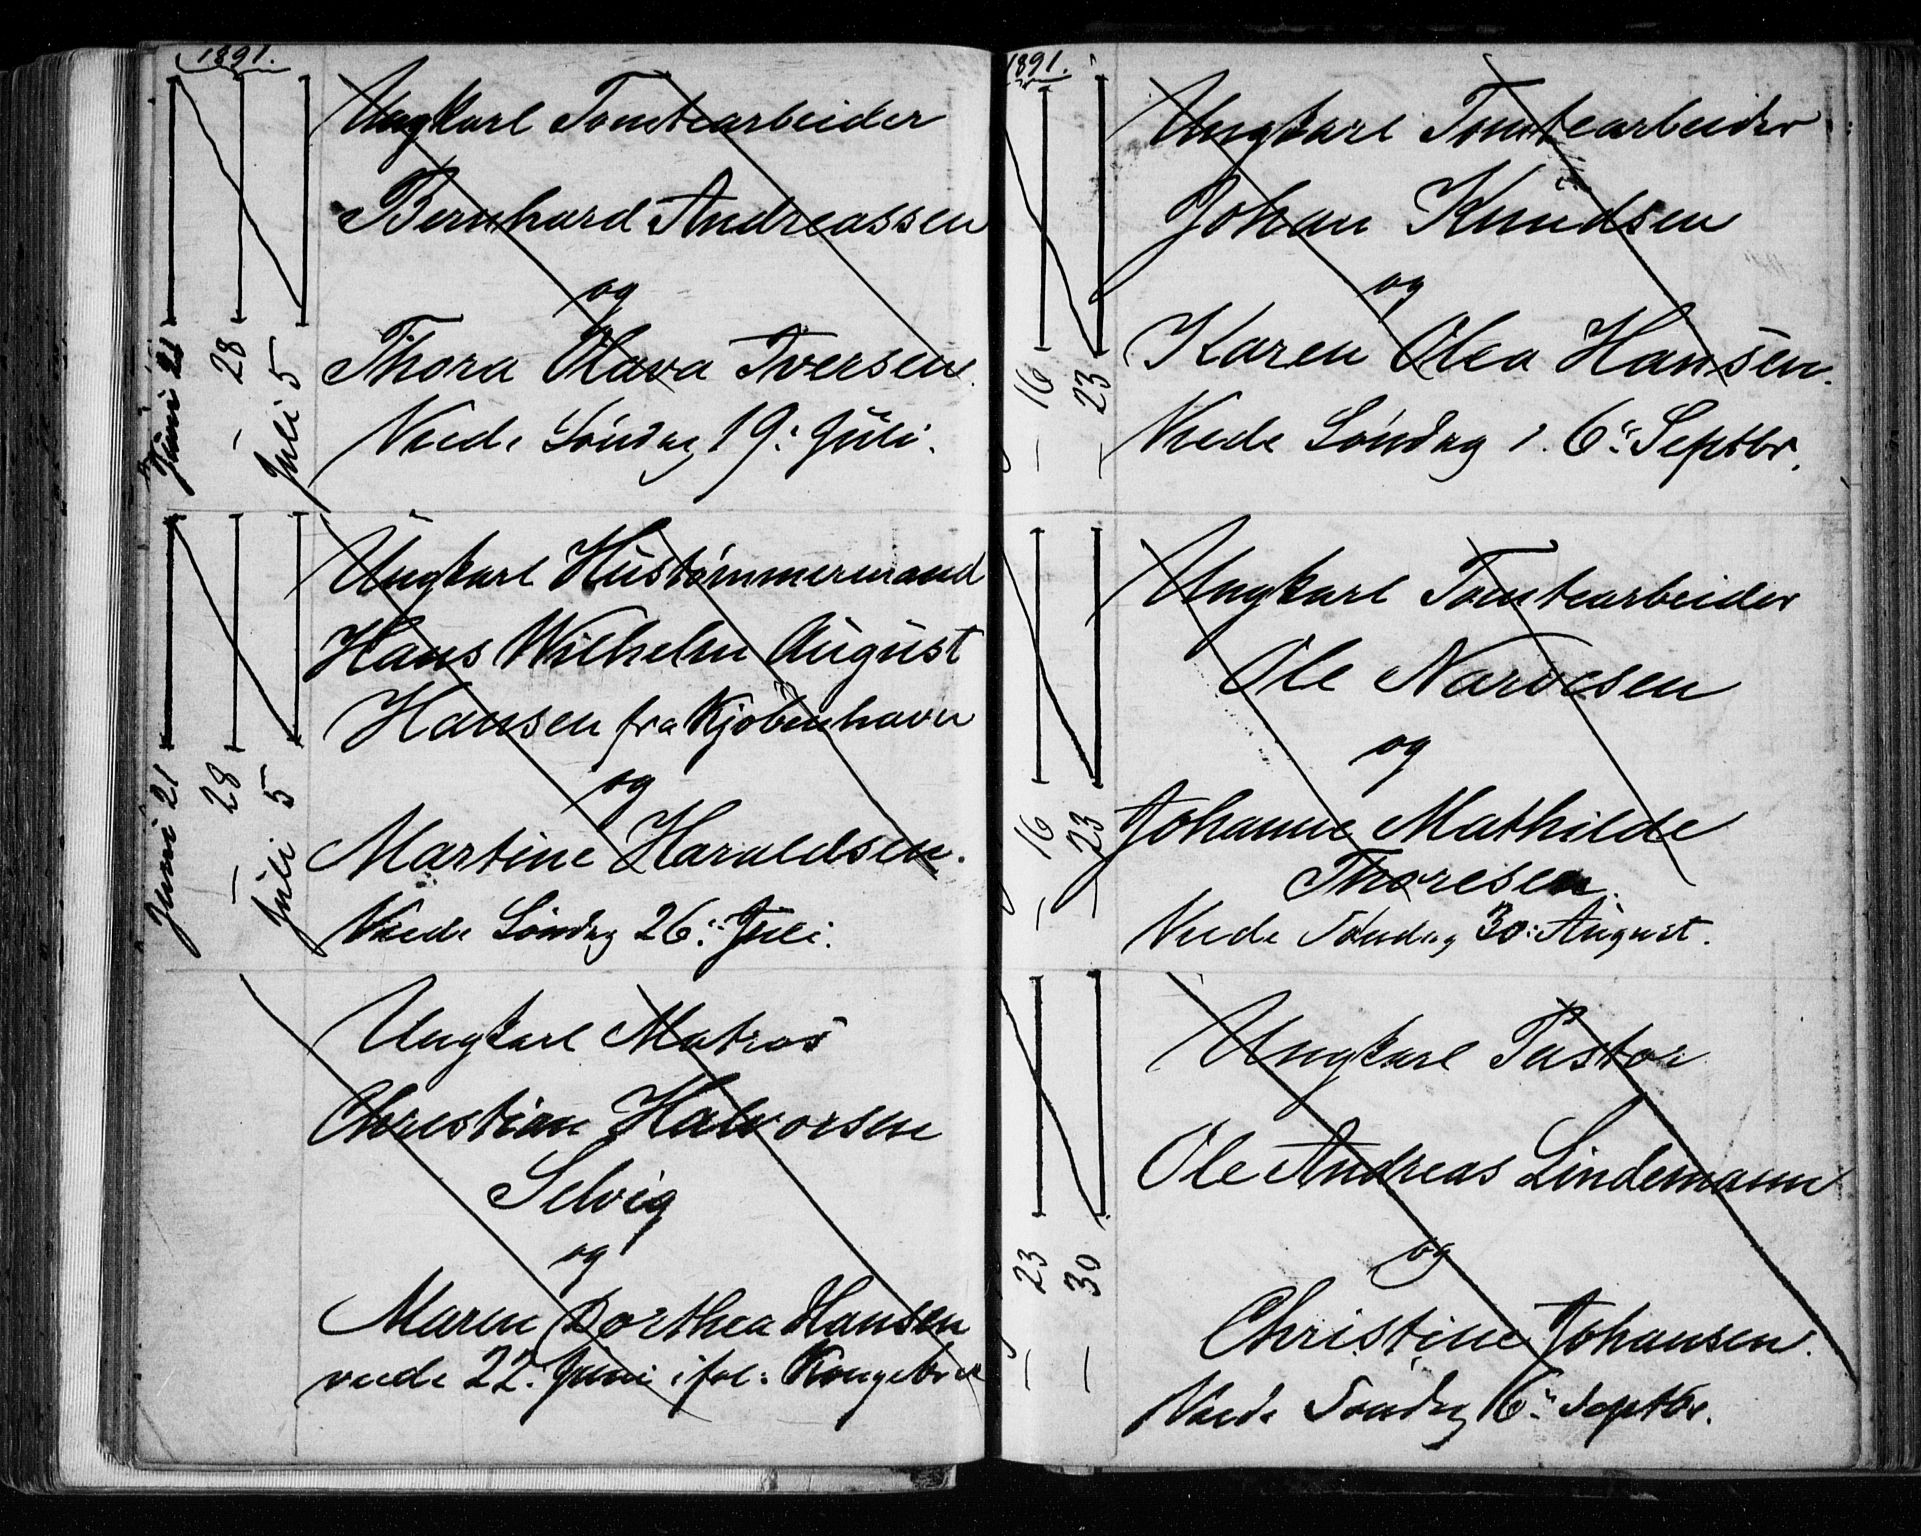 1891.
Juni 21
— 28
Juli 5
Ungkarl Tomtearbeider
Bernhard Andreassen
og
Thora Olava Iversen.
Viede Søndag 19: Juli.
Juni 21
— 28
Juli 5
Ungkarl Hustømmermand
Hans Wilhelm August
Hansen fra Kjøbenhavn
og
Martine Haraldsen.
Viede Søndag 26: Juli.
Ungkarl Matros
Christian Halvorsen
Selvig
og
Maren Dorthea Hansen
viede 22. Juni iføl:
1891.
— 16
— 23
Ungkarl Tomtearbeider
Johan Knudsen
og
Karen Olea Hansen.
Viede Søndag 6: Septbr.
— 16
— 23
Ungkarl Tomtearbeider
Ole Narvesen
og
Johanne Mathilde
Thoresen.
Viede Søndag 30: August.
— 23
— 30
Ungkarl Pastor
Ole Andreas Lindemann
og
Christine Johansen.
Viede Søndag 6: Septbr.